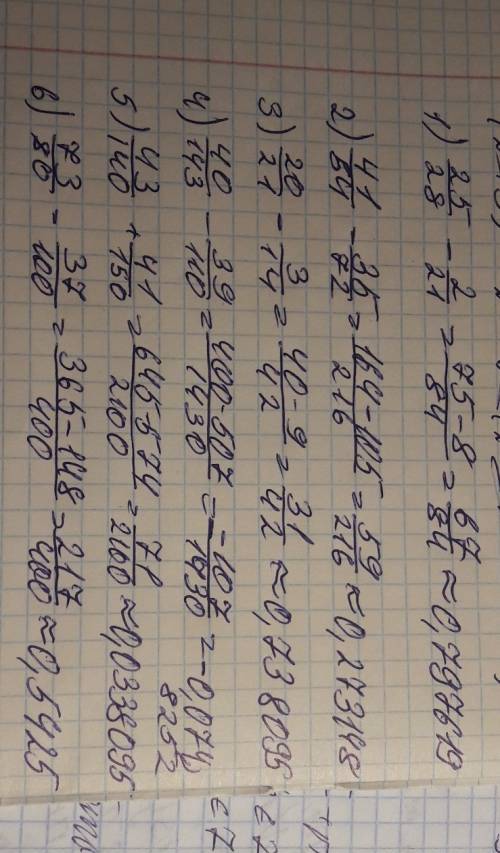 1) 25/28 - 2/21 = 75-8/84 = 67/84 ≈ 0,797619
2) 41/54 - 35/72 = 164-105/216 = 59/216 ≈ 0,273148
3) 20/21 - 3/14 = 40-9/42 = 31/42 ≈ 0,738095
4) 40/143 - 39/110 = 400-507/1430 = -107/1430 ≈ -0,074
8252
5) 43/140 + 41/150 = 645-574/2100 = 71/2100 ≈ 0,0338095
6) 73/80 - 37/100 = 365-148/400 = 217/400 ≈ 0,5425